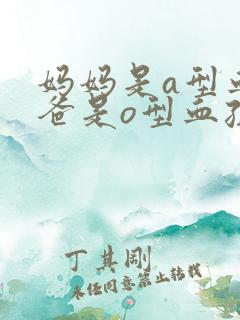 妈妈是a型血
爸是o型血孩
丁其刚
未经同意禁止转载